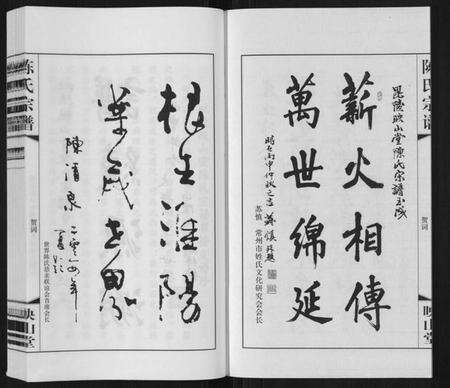 陈氏宗谱
贺词
映山堂
毘陵映山堂陳氏宗譜告成
薪火相傳
萬世綿延
時在丙申仲秋之吉 蘇慎敬題
苏慎 常州市姓氏文化研究会会长
根在淮陽
業茂世界
陳清泉 二零一四年
世界陈氏宗亲联谊会首席会长
陈氏宗谱
贺词
映山堂